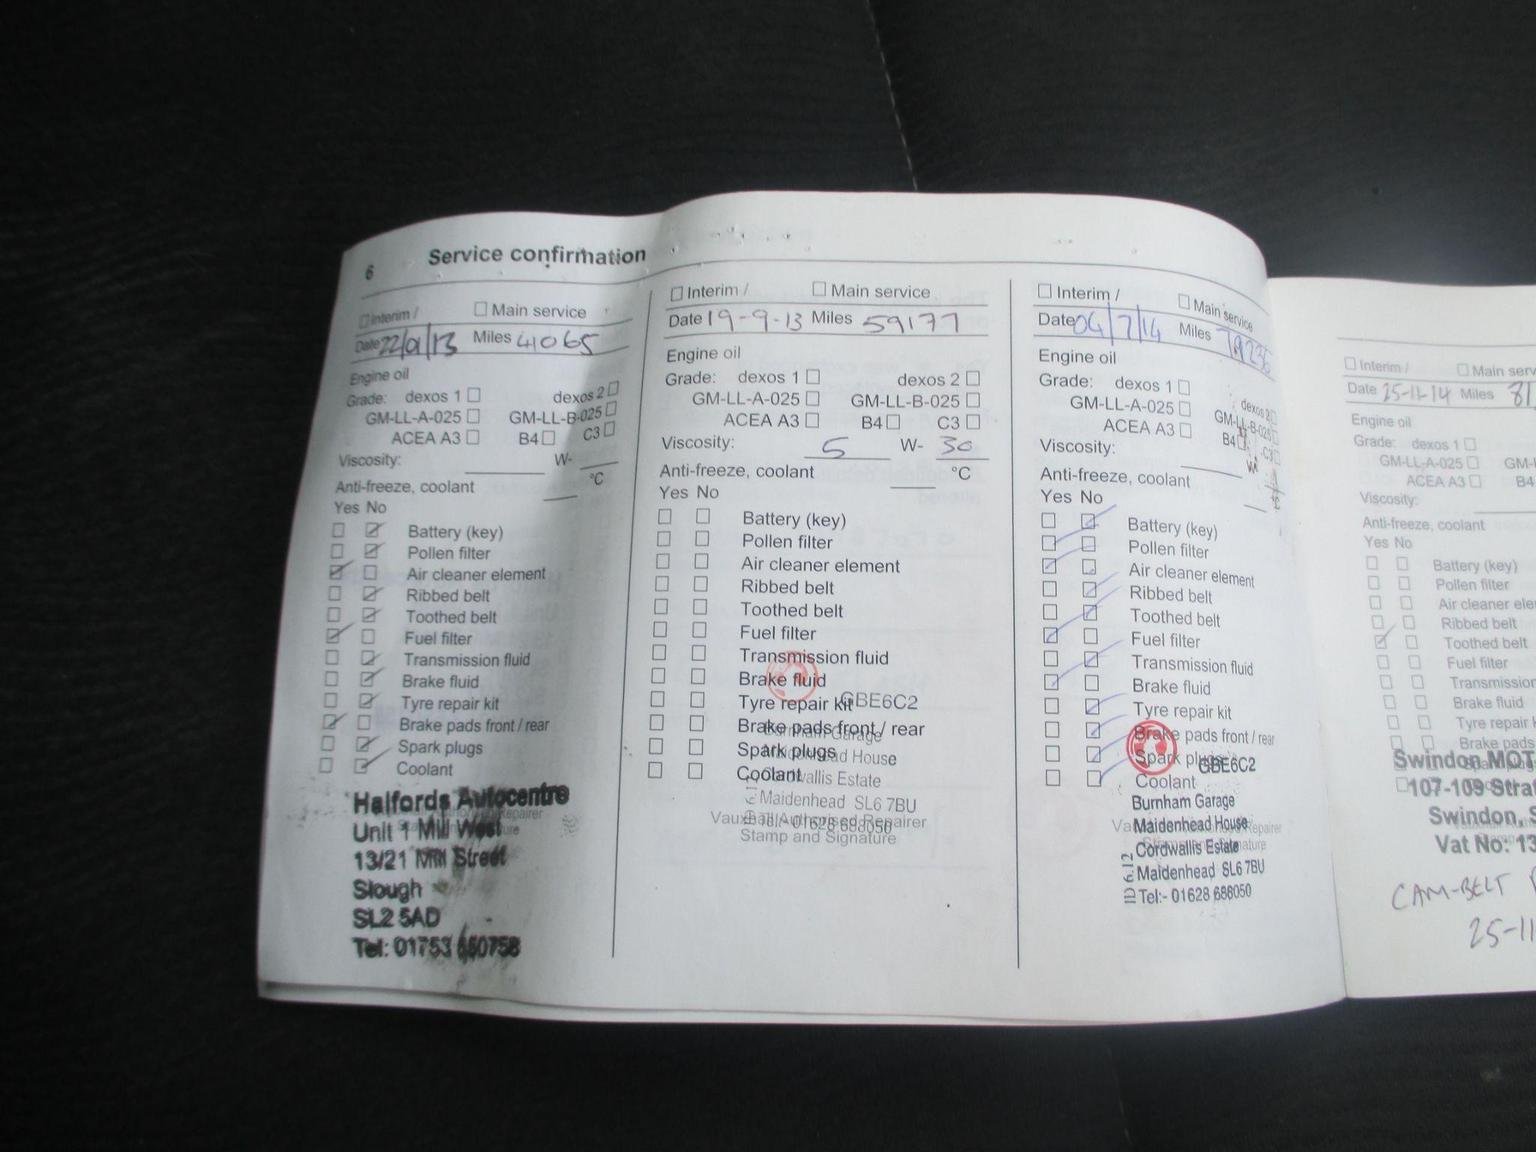 6 Service confirmation
Interim / Main service
Date 22/01/13 Miles 41065
Engine oil
Grade: dexos 1 dexos 2
GM-LL-A-025 GM-LL-B-025
ACEA A3 B4 C3
Viscosity: W-
Anti-freeze, coolant °C
Yes No
Battery (key)
Pollen filter
Air cleaner element
Ribbed belt
Toothed belt
Fuel filter
Transmission fluid
Brake fluid
Tyre repair kit
Brake pads front / rear
Spark plugs
Coolant
Halfords Autocentre
Unit 1 Mill West
13/21 Mill Street
Slough
SL2 5AD
Tel: 01753 550758
Interim / Main service
Date 19-9-13 Miles 59177
Engine oil
Grade: dexos 1 dexos 2
GM-LL-A-025 GM-LL-B-025
ACEA A3 B4 C3
Viscosity: 5 W- 30
Anti-freeze, coolant °C
Yes No
Battery (key)
Pollen filter
Air cleaner element
Ribbed belt
Toothed belt
Fuel filter
Transmission fluid
Brake fluid
Tyre repair kit GBE6C2
Brake pads front / rear
Burnham Garage
Spark plugs
Maidenhead House
Coolant
Cordwallis Estate
Maidenhead SL6 7BU
Vauxhall Authorised Repairer
Tel:- 01628 688050
Stamp and Signature
Interim / Main service
Date 04/7/14 Miles
Engine oil
Grade: dexos 1 dexos 2
GM-LL-A-025 GM-LL-B-025
ACEA A3 B4 C3
Viscosity: W-
Anti-freeze, coolant
Yes No
Battery (key)
Pollen filter
Air cleaner element
Ribbed belt
Toothed belt
Fuel filter
Transmission fluid
Brake fluid
Tyre repair kit
Brake pads front / rear
Spark plugs GBE6C2
Coolant
Burnham Garage
Maidenhead House
Cordwallis Estate
Maidenhead SL6 7BU
Tel:- 01628 688050
ID 6.12
Interim / Main serv
Date 25-11-14 Miles 81
Engine oil
Grade: dexos 1
GM-LL-A-025 GM-
ACEA A3 B4
Viscosity:
Anti-freeze, coolant
Yes No
Battery (key)
Pollen filter
Air cleaner ele
Ribbed belt
Toothed belt
Fuel filter
Transmission
Brake fluid
Tyre repair k
Brake pads
Swindon MOT
107-109 Strat
Swindon, S
Vat No: 13
CAM-BELT
25-11